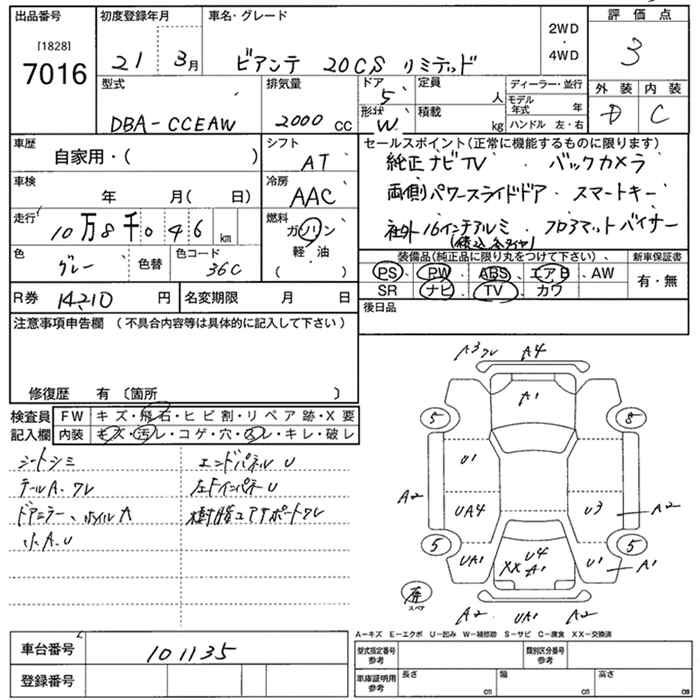 出品番号
[1828]
7016
初度登録年月
21 3月
車名・グレード
ビアンテ 20CS リミテッド
2WD
・
4WD
評価点
3
外装 内装
D C
型式
DBA-CCEAW
排気量
2000 cc
ドア
5
形状
W
定員
人
積載
kg
ディーラー・並行
モデル年式 年
ハンドル 左・右
車歴
自家用・( )
シフト
AT
車検
年 月( 日)
冷房
AAC
走行
10万8千046 km
燃料
ガソリン
軽油
( )
色
グレー
色替
色コード
36C
R券 14,210 円
名変期限 月 日
セールスポイント(正常に機能するものに限ります)
純正ナビTV ・ バックカメラ
両側パワースライドドア ・ スマートキー
社外16インチアルミ ・ フロアマットバイザー
装備品(純正品に限り丸をつけて下さい)、
PS、PW、ABS、エアB、AW
SR ナビ、TV、カワ
新車保証書
有・無
後日品
注意事項申告欄 (不具合内容等は具体的に記入して下さい)
修復歴 有〔箇所 〕
検査員
記入欄
FW キズ・飛石・ヒビ割・リペア跡・X要
内装 キズ・汚レ・コゲ・穴・スレ・キレ・破レ
シートシミ
テールA、ワレ
ドアミラー、ホイルA
小A.U
エンドパネルU
左ドインパネU
樹脂コアサポートワレ
A3ワレ A4
A1
5 8
U1
A2
UA4 U3 A2
5 5
UA1 U4 U1 A1
XX A1
スペア
A2 UA1 A2
A-キズ E-エクボ U-凹み W-補修跡 S-サビ C-腐食 XX-交換済
車台番号 101135
登録番号
型式指定番号
参考
類別区分番号
参考
車庫証明用
参考
長さ cm
幅 cm
高さ cm